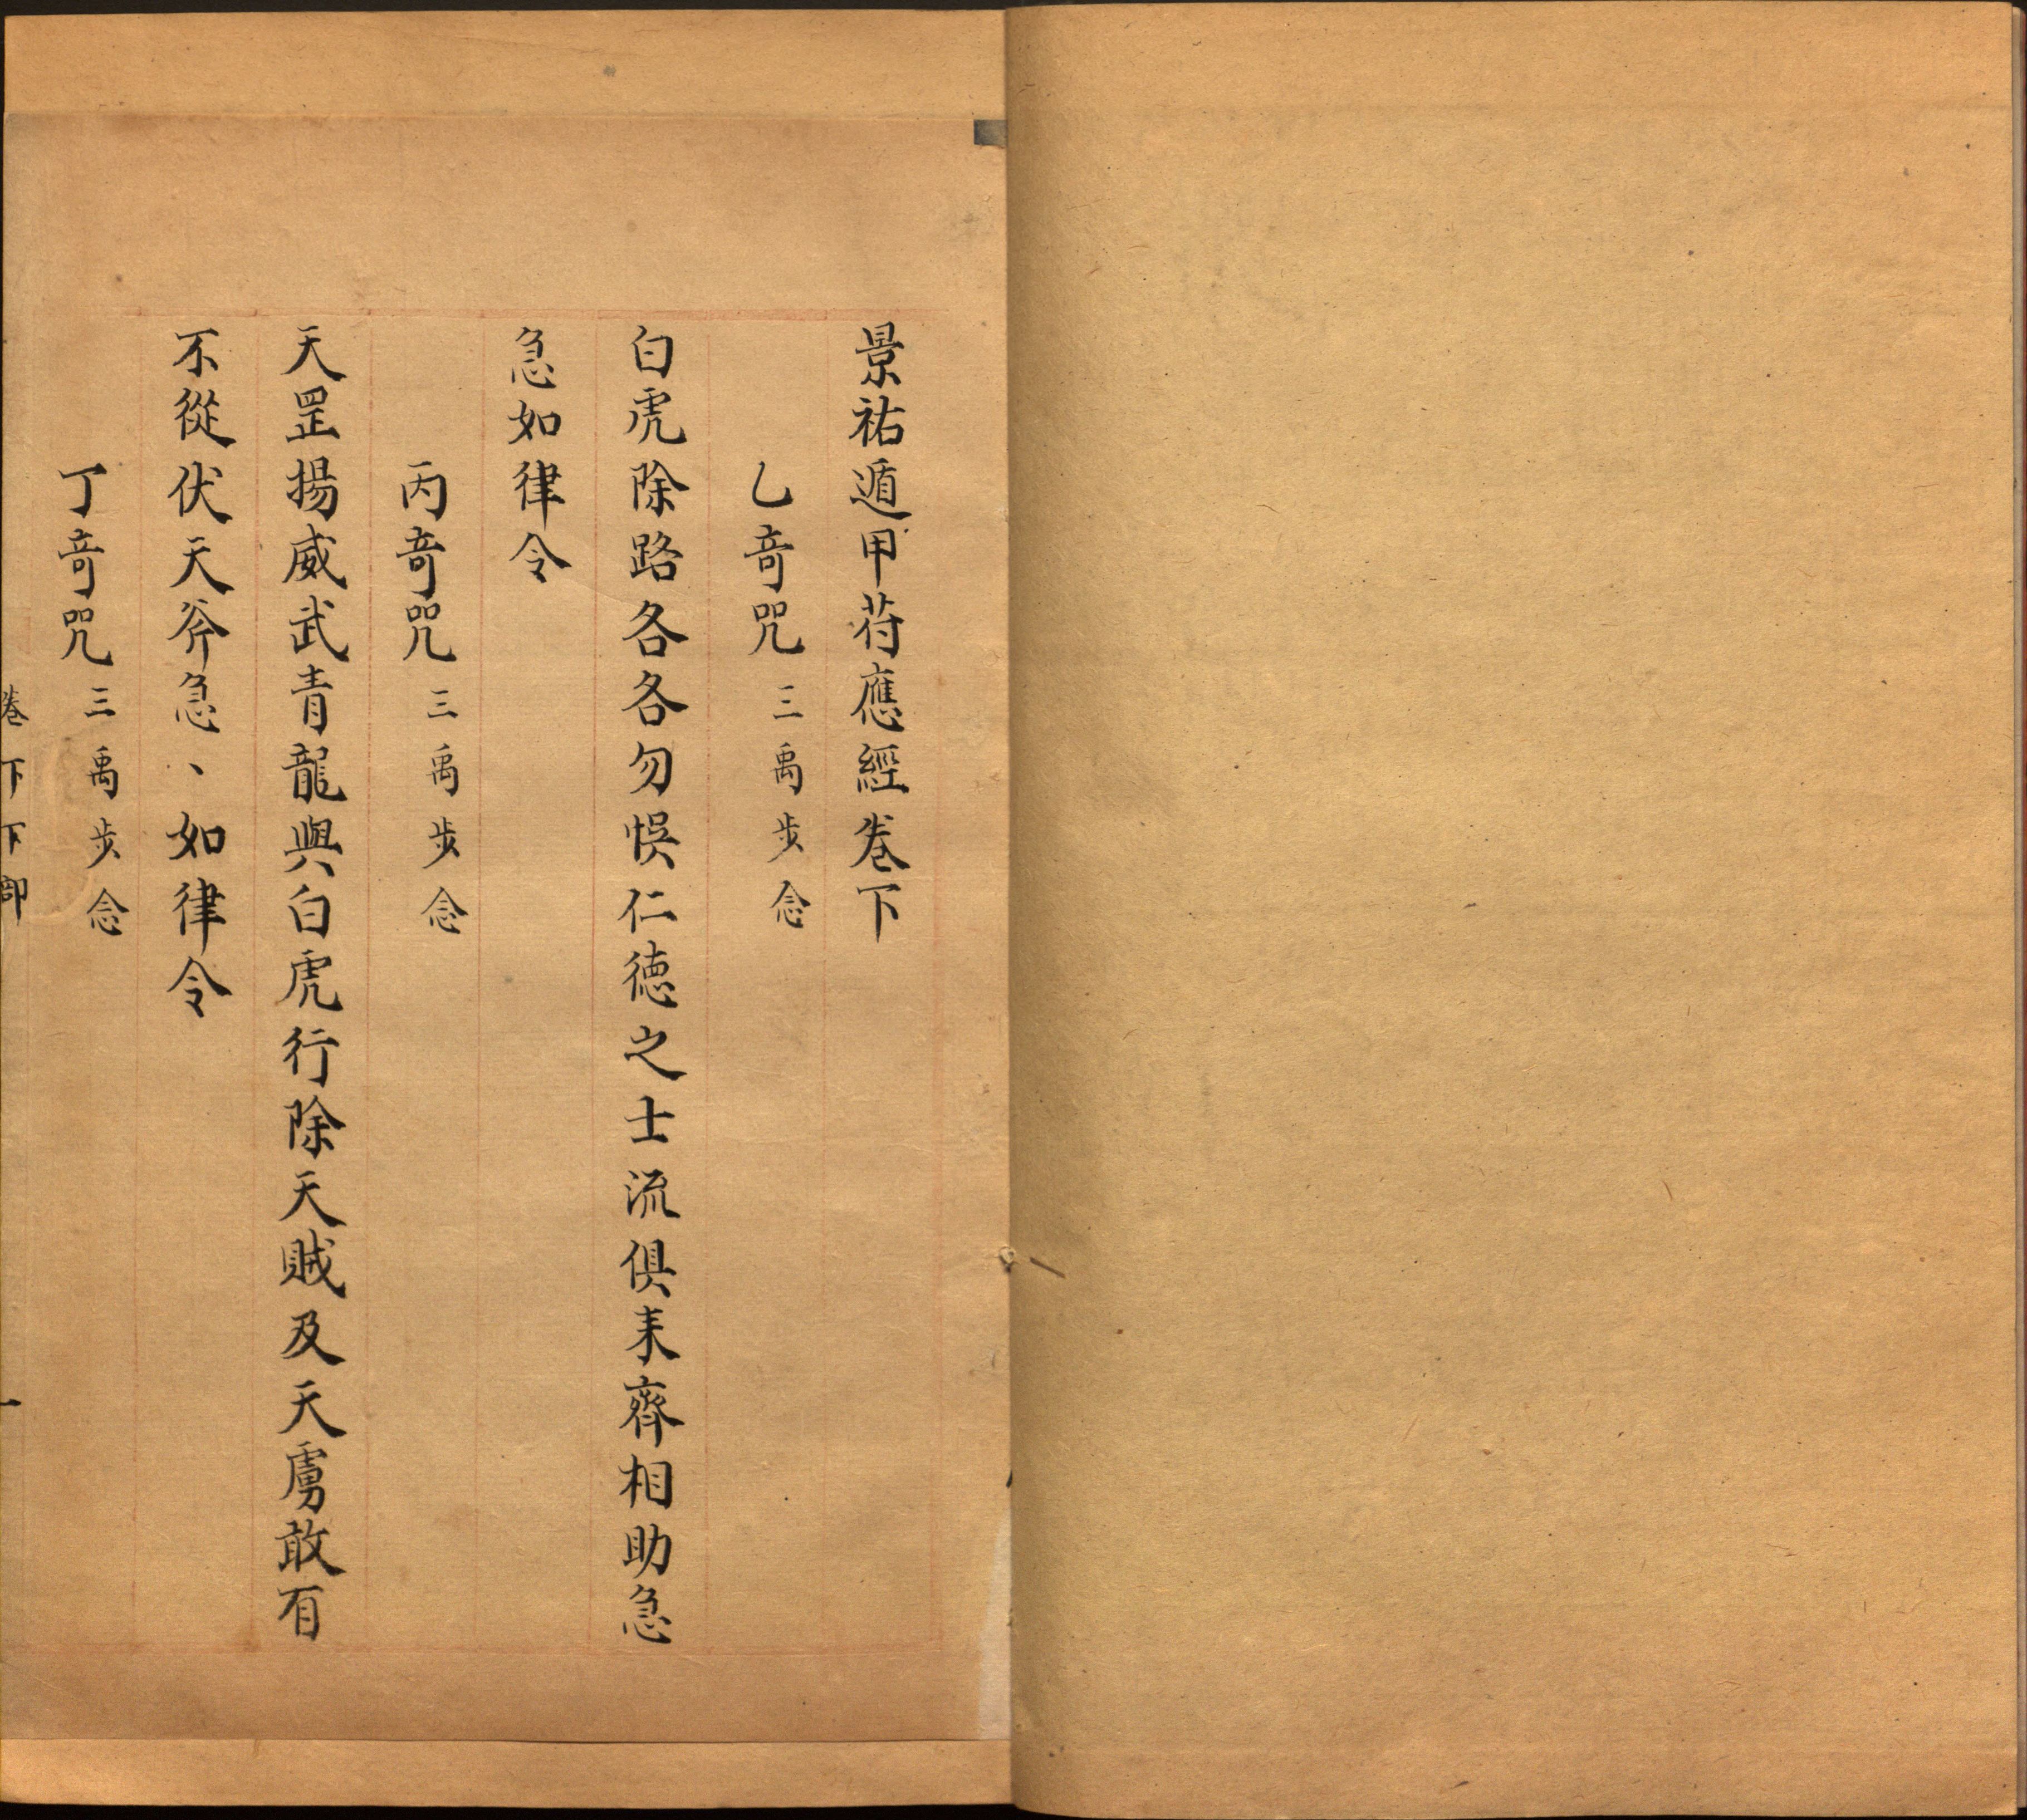 景祐遁甲苻應經卷下
乙竒咒三禹步念
白虎除路各各勿悞仁德之士流俱来齊相助急
急如律令
丙竒咒三禹步念
天罡揚威武青龍與白虎行除天賊及天虜敢有
不從伏天斧急、如律令
丁竒咒三禹步念
卷下下部 一